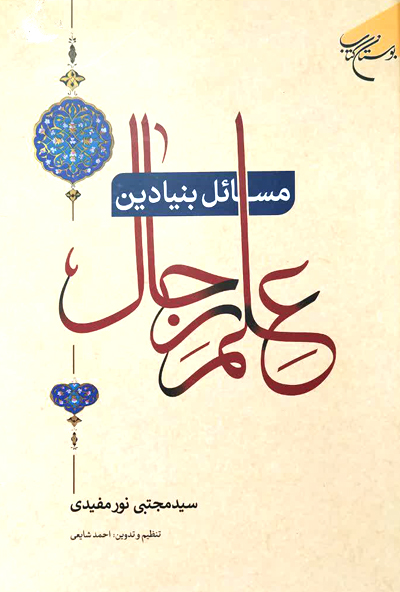 بوستان کتاب
مسائل بنیادین
علم رجال
سیدمجتبی نورمفیدی
تنظیم و تدوین: احمد شایعی